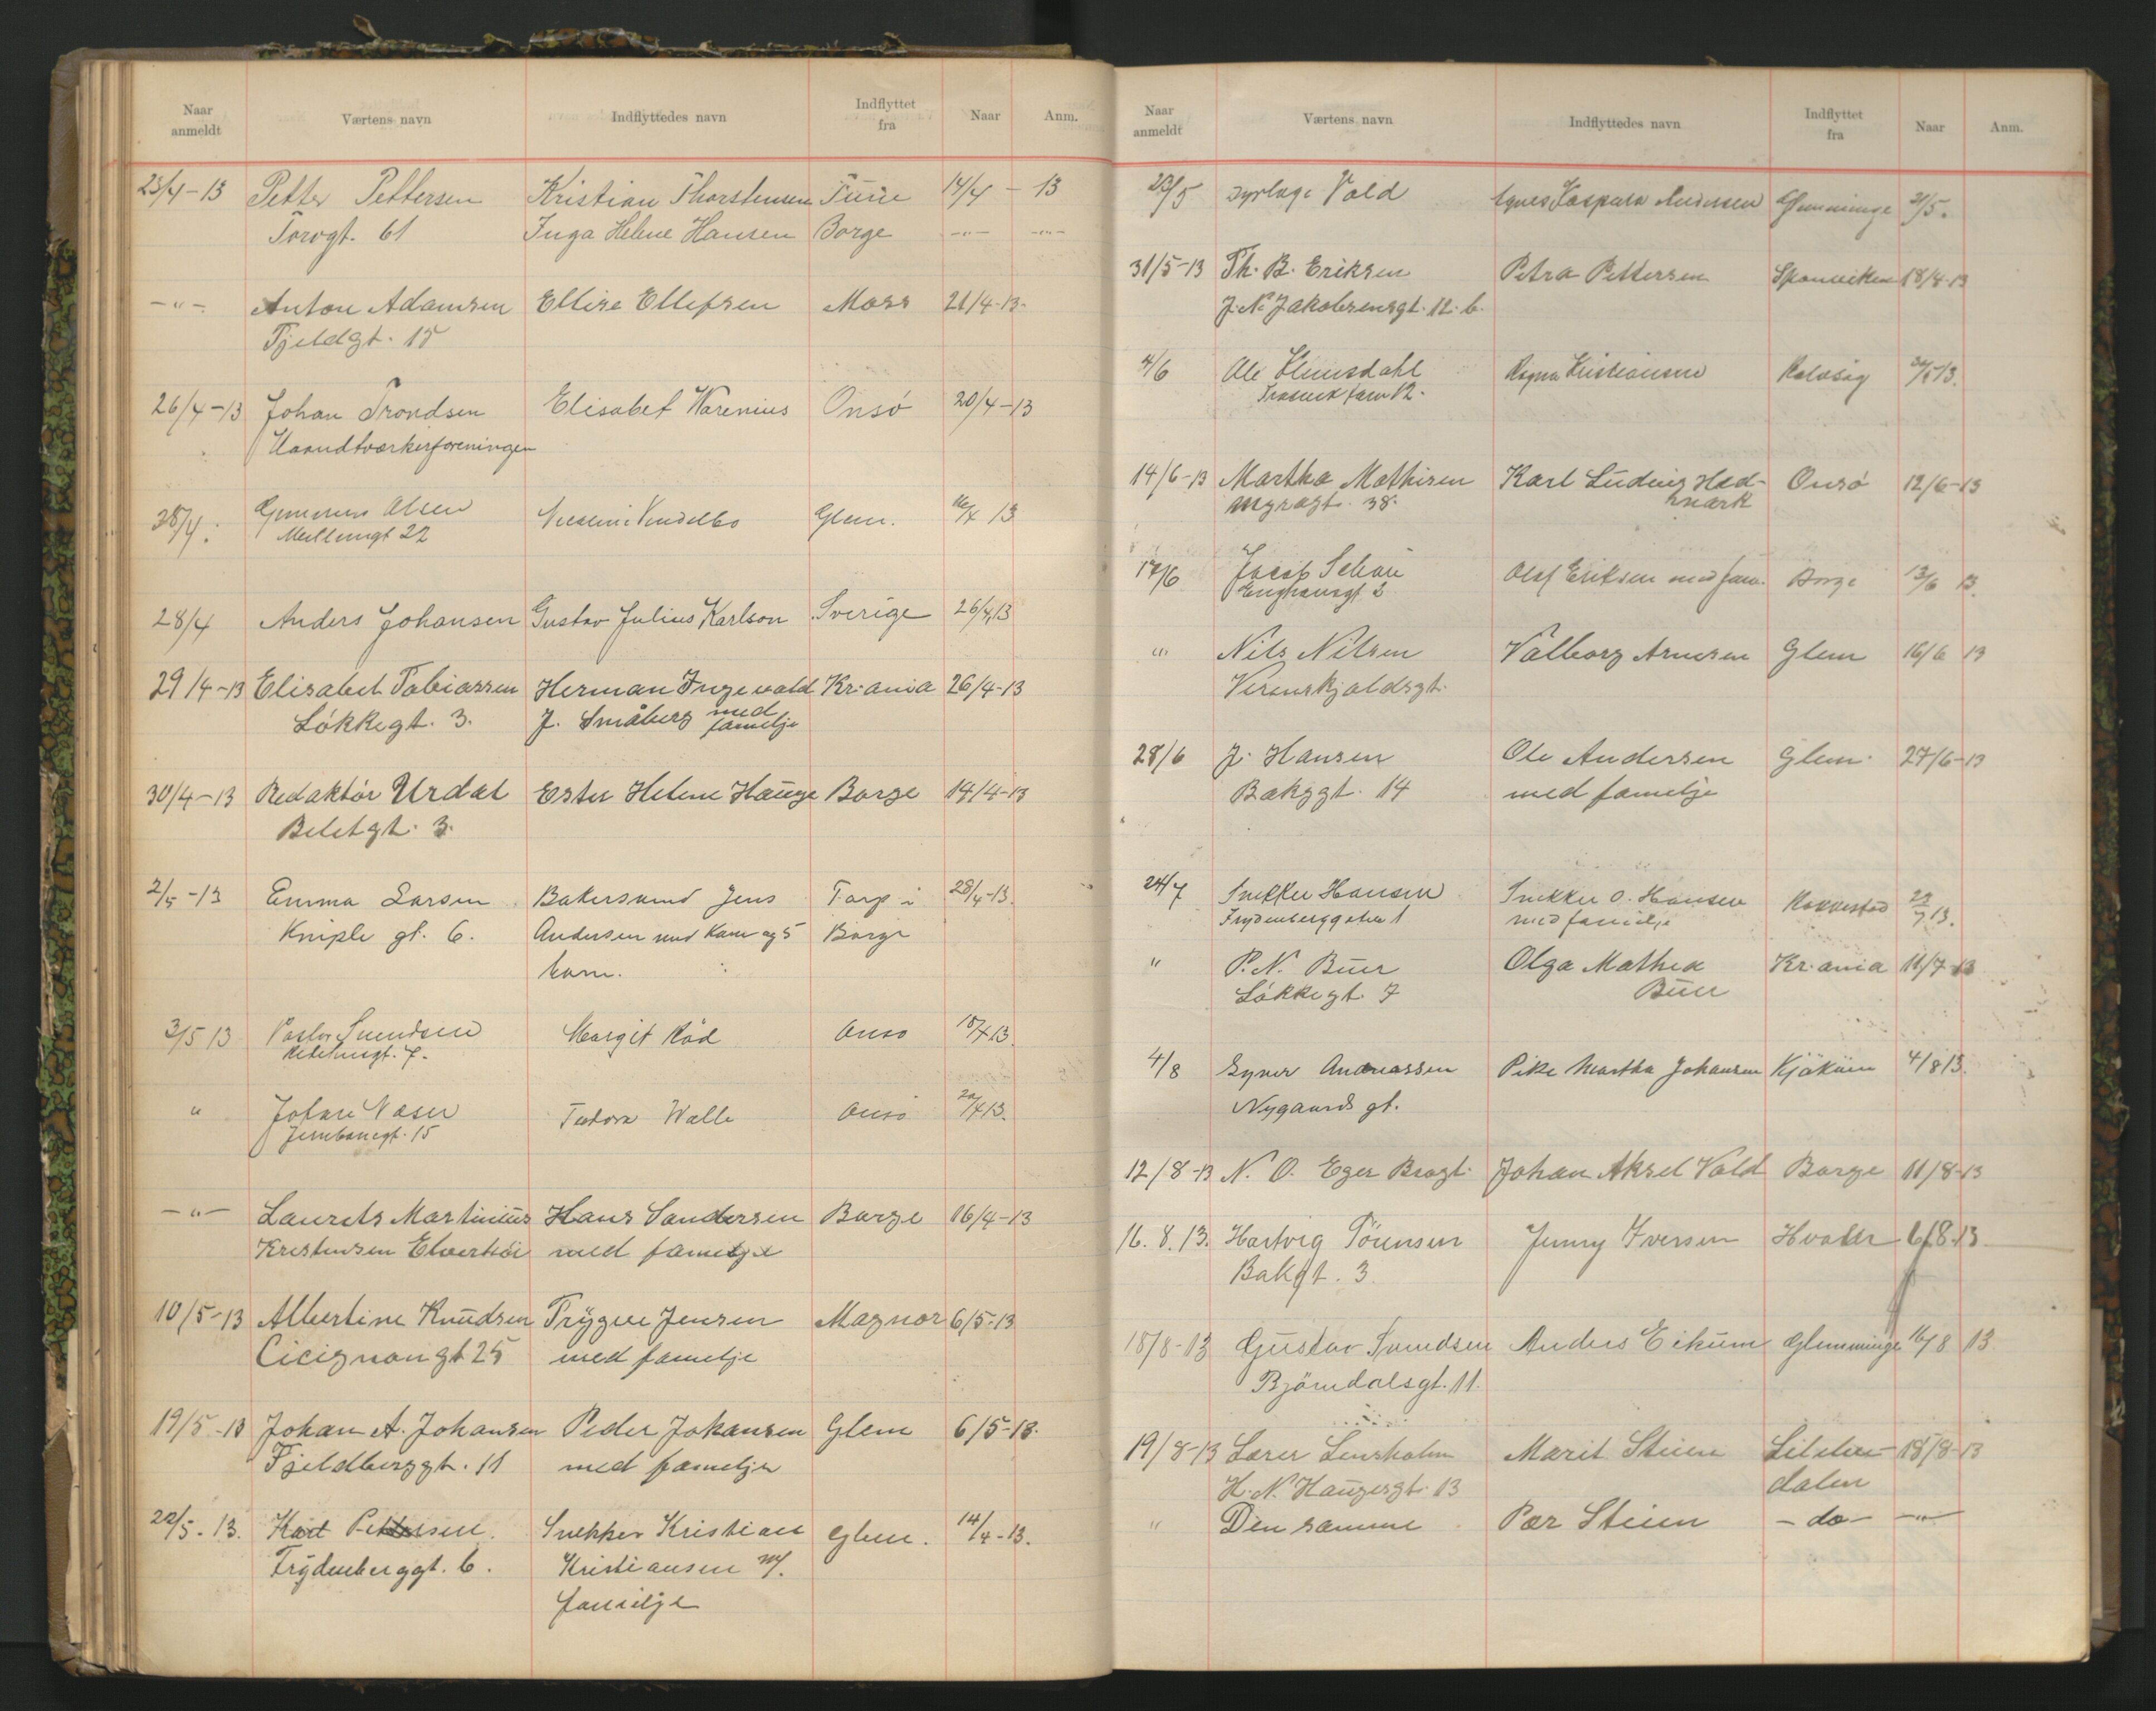 Naar anmeldt Værtens navn Indflyttedes navn Indflyttet fra Naar Anm.
23/4-13 Petter Pettersen Kristian Thorstensen Tune 14/4 - 13
Torvgt. 61 Inga Helene Hansen Borge -"- -"-
-"- Anton Adamsen Ellise Ellefsen Moss 21/4-13.
Fjeldgt. 15
26/4-13 Johan Trondsen Elisabet Warenius Onsö 20/4-13
Haandtværkerforeningen
28/4. Olsen Vendelbo Glem. 16/4 13
22
28/4 Anders Johansen Gustav Julius Karlson Sverige 26/4 13
29/4-13 Elisabet Tobiassen Herman Ingevald Kr:ania 26/4-13
Lökkegt. 3. J. Småberg med familje
30/4-13 Redaktör Urdal Ester Helene Hauge Borge 14/4-13
3.
2/5-13 Emma Larsen Bakersvend Jens Torp i 28/4-13.
Kniple gt. 6. Andersen med Kone og 5 Borge
barn.
3/5 13 Pastor Svendsen Margit Röd Onsö 15/4 13.
7.
" Johan Næser Teodora Walle Onsö 20/4 13.
Jernbanegt. 15
-"- Laurets Martinius Hans Sandersen Borge 16/4-13
Kristensen med familje
10/5-13 Albertine Knudsen Trygve Jensen Magnor 6/5-13
Cicignongt 25 med familje
19/5-13 Johan A. Johansen Peder Johansen Glem 6/5-13.
Fjeldberggt. 11 med familje
22/5-13. Karl Pettersen. Snekker Kristian Glem. 14/4-13.
Frydenberggt. 6. Kristiansen m/.
familje
Naar anmeldt Værtens navn Indflyttedes navn Indflyttet fra Naar Anm.
Vold Agnes Kaspara Andersen Glemminge 2/5.
31/5-13 Th. B. Eriksen Petra Pettersen Sponvicken 18/4-13
J. N. Jakobsensgt. 12. b.
4/6 Ole Ragna Kristiansen
12.
14/6-13 Martha Mathisen Karl Ludvig Hed- Onsö 12/6-13
Myragt. 38. mark
17/6 Jacob Olaf Eriksen med fam. Borge 13/6 13.
Enghausgt 3
"' Nils Nilsen Valborg Arnesen Glem 16/6 13
Verenskjoldsgt.
28/6 J. Hansen Ole Andersen Glem. 27/6-13
14 med familje
24/7 Snekker Hansen Snekker O. Hansen Rakkestad 23/7 13.
Frydenberggaten 1 med familje
" P. N. Buer Olga Mathea Kr:ania 11/7-13
Lökkegt. 7 Buer
4/8 Andreassen Pike Martha Johansen 4/8 13.
Nygaards gt.
12/8-13 N. O. Eger Brogt. Johan Aksel Vold Borge 11/8-13
16. 8. 13. Hartvig Jenny Iversen Hvaler 6/8-13
Bakgt. 3.
18/8-13 Gustav Svendsen Anders Eikum Glemminge 16/8 13.
Björndalsgt. 11.
19/8-13 Lærer Lensholm Marit Steien Lilelve- 18/8-13
H. N. Haugesgt. 13 dalen
" Den samme Per Steien - do - -"-